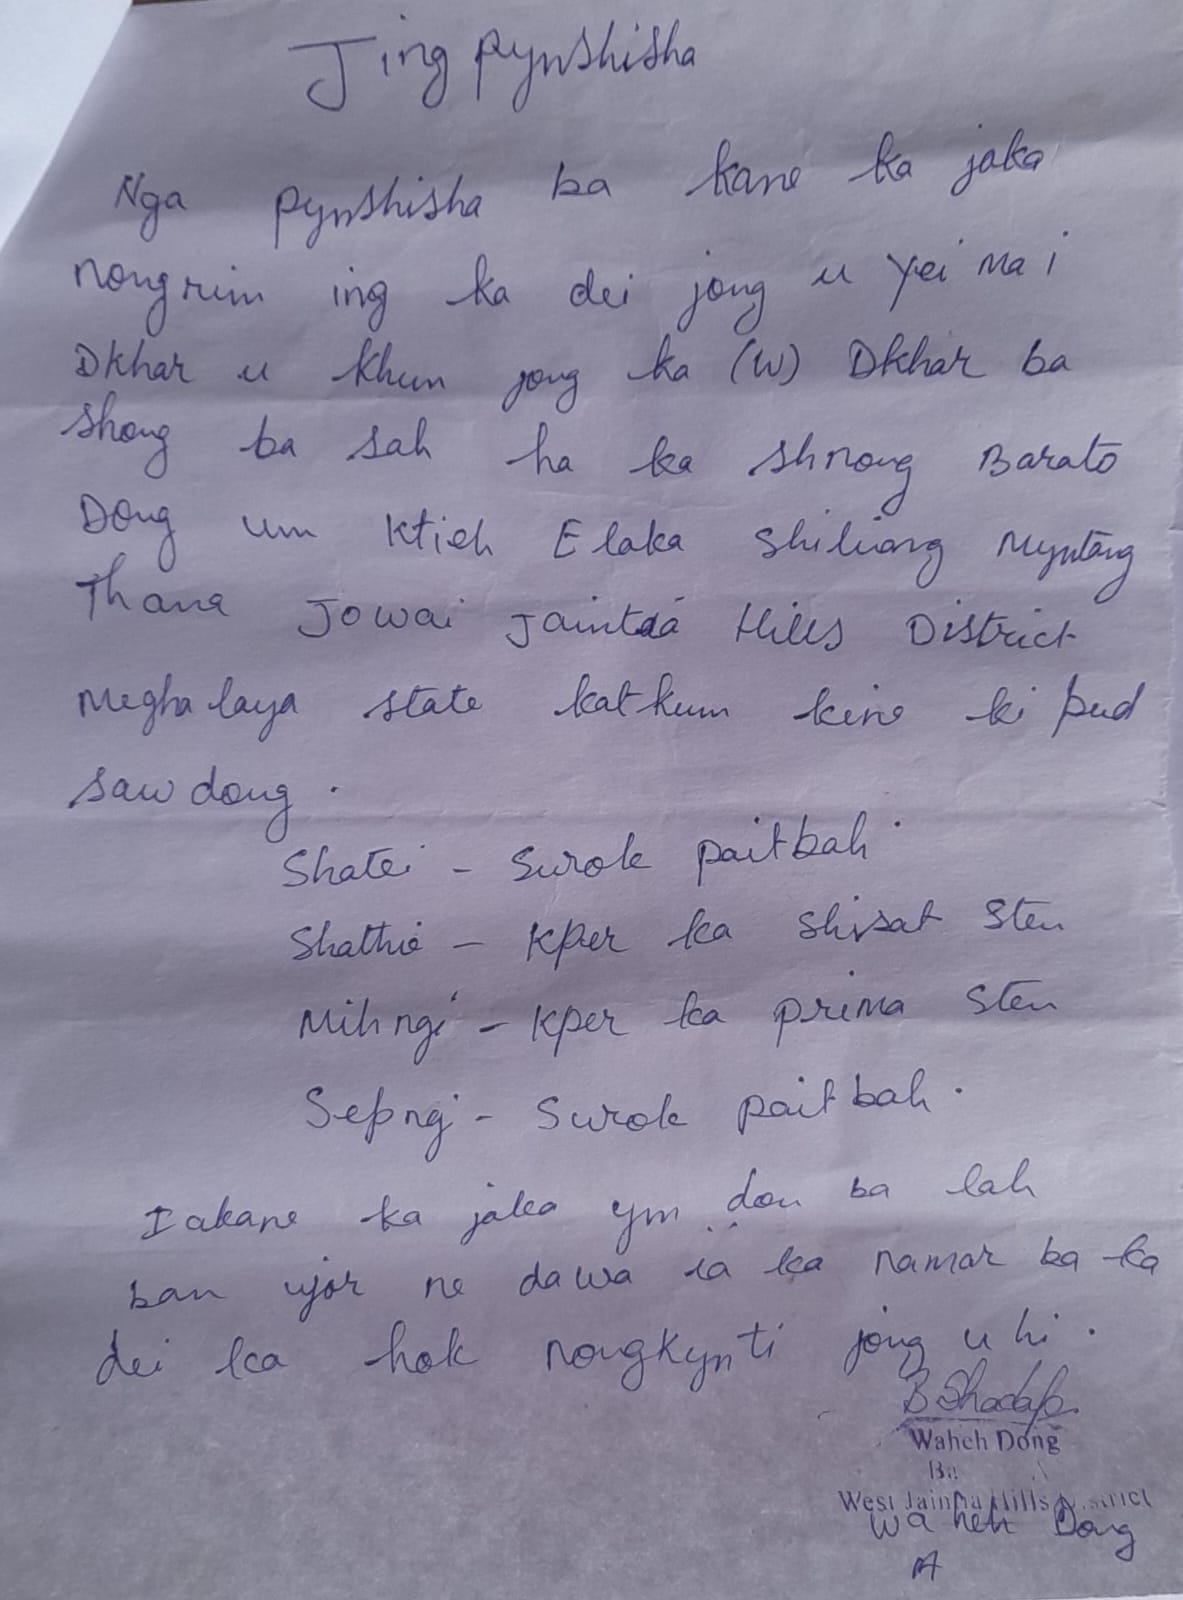 Jingpynshisha
Nga pynshisha ba kane ka jaka
nongrim ing ka dei jong u Yei Mai
Dkhar u khun jong ka (W) Dkhar ba
shong ba sah ha ka shnong Barato
Dong um Ktieh Elaka Shiliang Myntang
Thana Jowai Jaintia Hills District
Meghalaya state katkum kine ki pud
sawdong.
Shatei - Surok paitbah.
Shathie - Kper ka Shisat Sten
Mihngi - Kper ka prima Sten
Sepngi - Surok paitbah.
Iakane ka jaka ym don ba lah
ban ujor ne dawa ia ka namar ba ka
dei ka hok nongkynti jong u hi.
B Shadap
Waheh Dong
Ba
West Jaintia Hills District
Waheh Dong
A